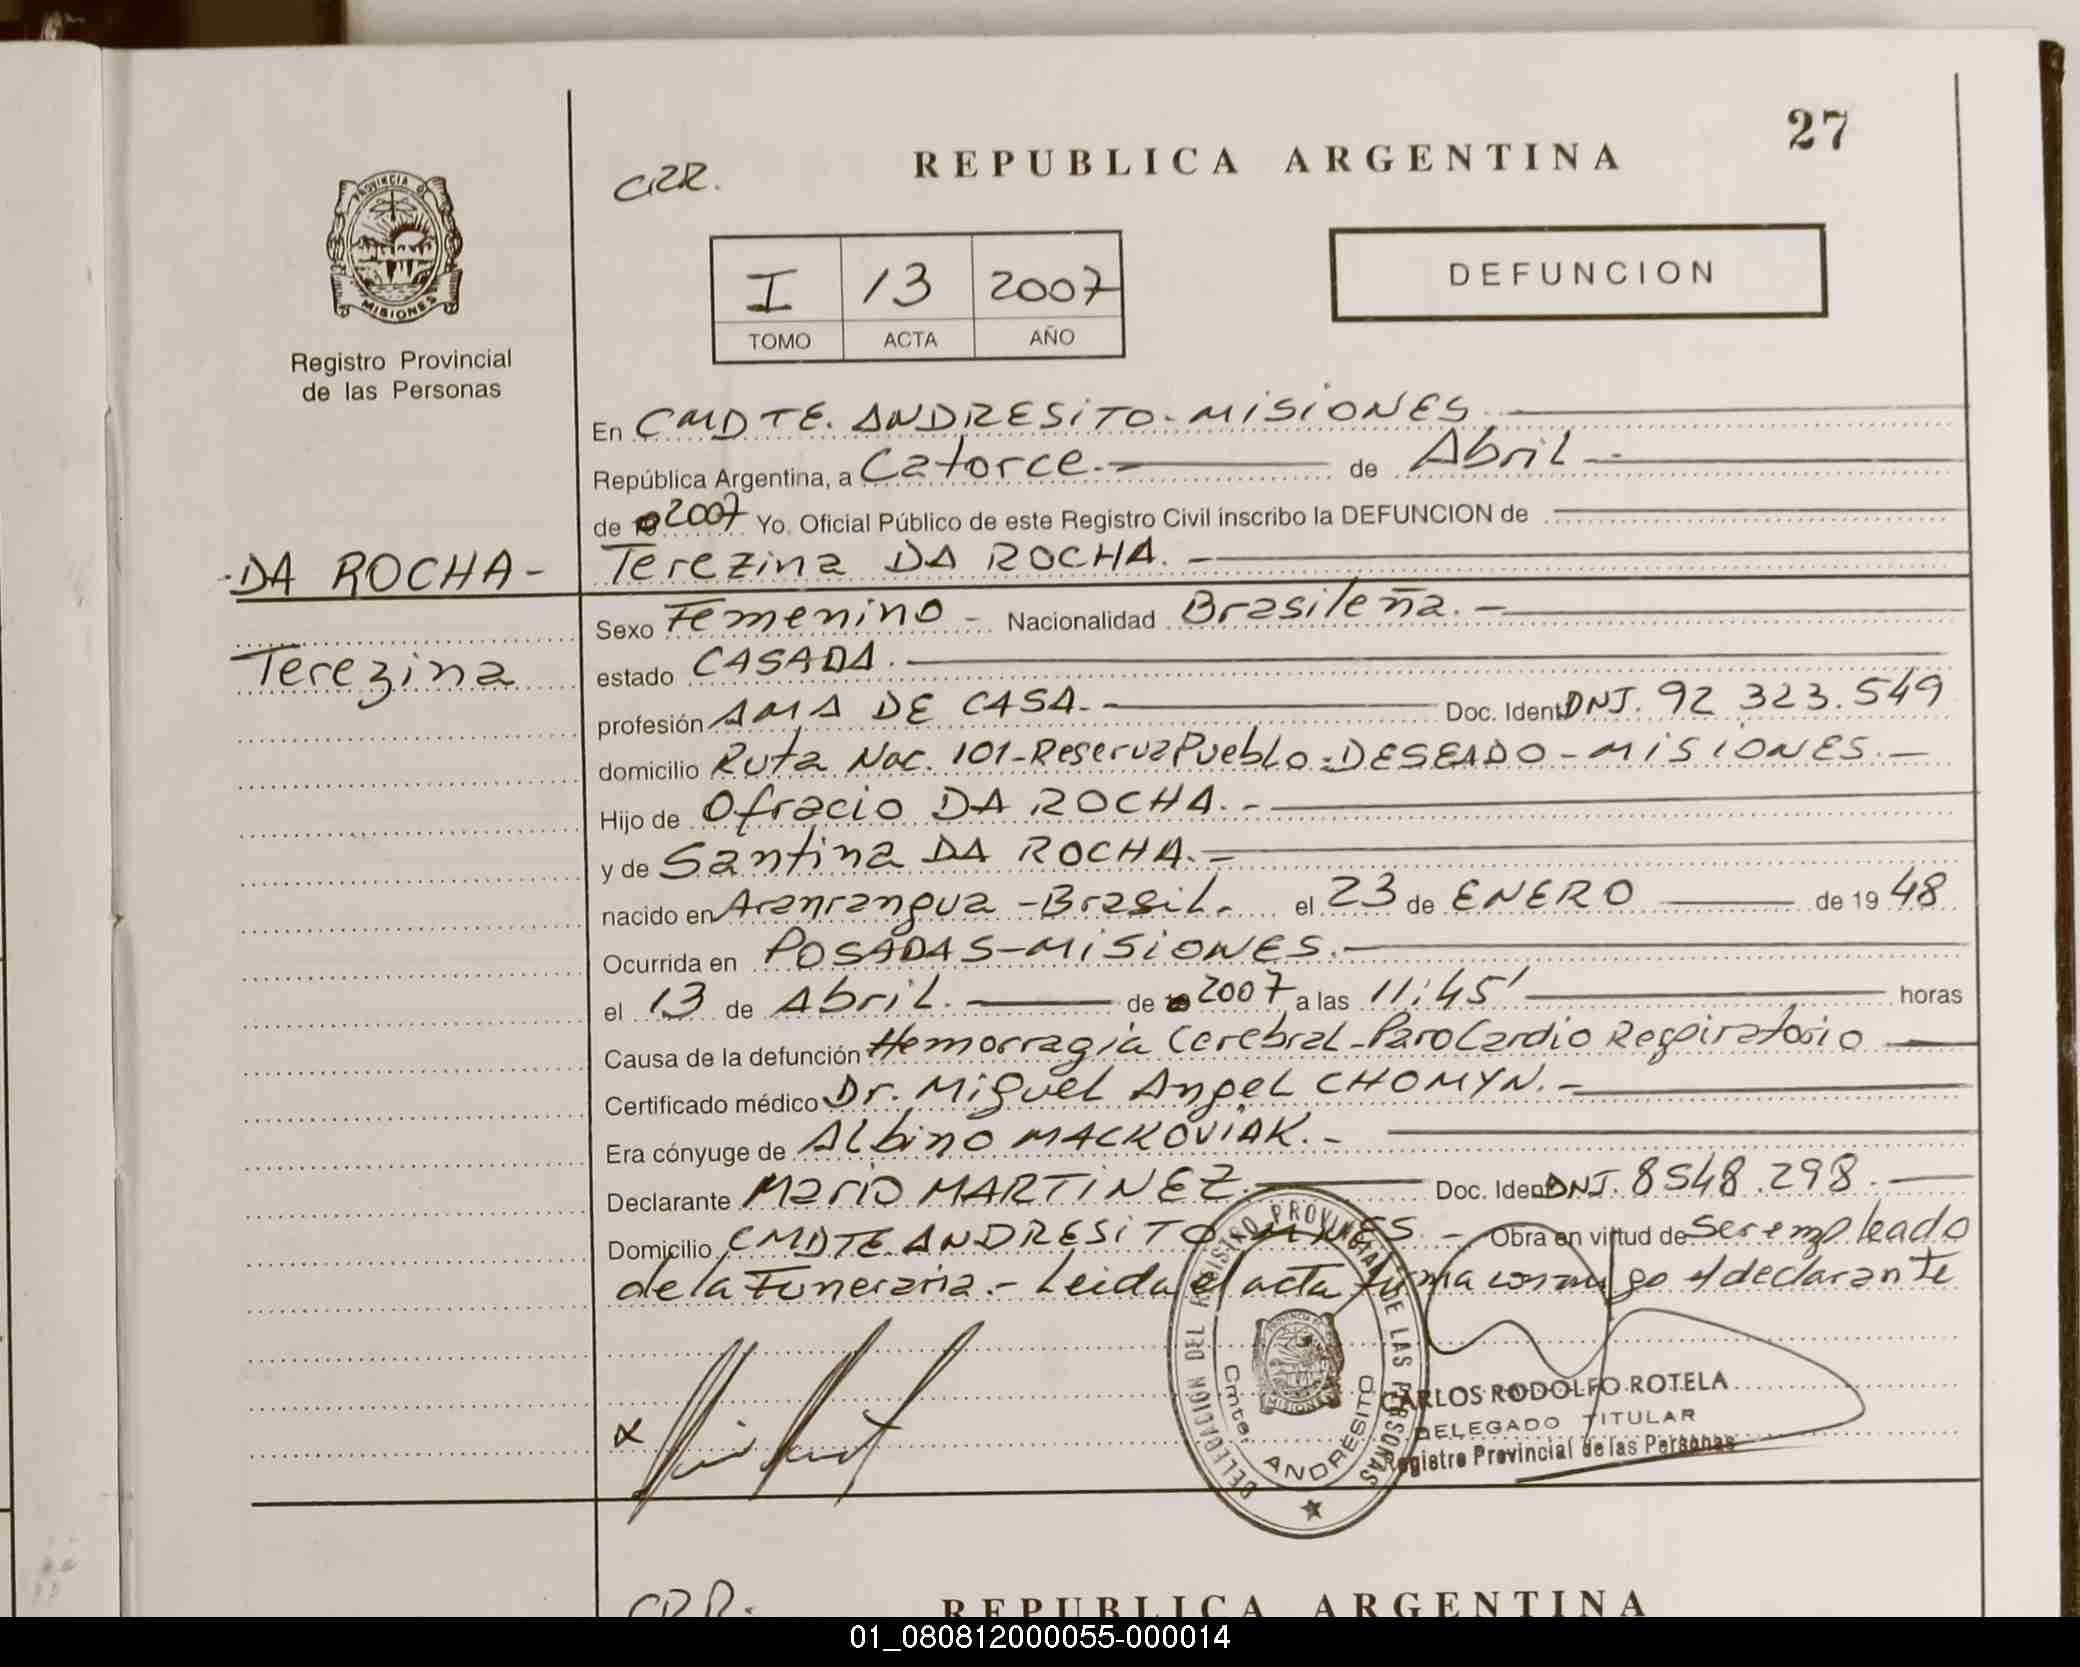 27
CRR.
REPUBLICA ARGENTINA
PROVINCIA DE
MISIONES
Registro Provincial
de las Personas
I 13 2007
TOMO ACTA AÑO
DEFUNCION
En CMDTE. ANDRESITO - MISIONES
República Argentina, a Catorce.- de Abril -
de 2007 Yo, Oficial Público de este Registro Civil inscribo la DEFUNCION de
-DA ROCHA- Terezina DA ROCHA. -
Sexo Femenino - Nacionalidad Brasileña. -
Terezina
estado CASADA.
profesión AMA DE CASA.- Doc. Ident. DNI. 92 323.549
domicilio Ruta Nac. 101-Reserva Pueblo-DESEADO-MISIONES.-
Hijo de Ofracio DA ROCHA.-
y de Santina DA ROCHA.-
nacido en Aranrangua - Brasil. el 23 de ENERO de 19 48
Ocurrida en POSADAS-MISIONES.-
el 13 de Abril. de 2007 a las 11:45' horas
Causa de la defunción Hemorragia Cerebral-Paro Cardio Respiratorio
Certificado médico Dr. Miguel Angel CHOMYN.-
Era cónyuge de Albino MACKOVIAK.-
Declarante Mario MARTINEZ. Doc. Ident. DNI. 8548.298.
Domicilio CMDTE ANDRESITO MNES. - Obra en virtud de ser empleado
de la Funeraria.- Leida el acta firma conmigo el declarante
DELEGACION DEL REGISTRO PROVINCIAL DE LAS PERSONAS
PROVINCIA DE
MISIONES
Cmte. ANDRESITO
CARLOS RODOLFO ROTELA
DELEGADO TITULAR
Registro Provincial de las Personas
CRR.
REPUBLICA ARGENTINA
01_080812000055-000014